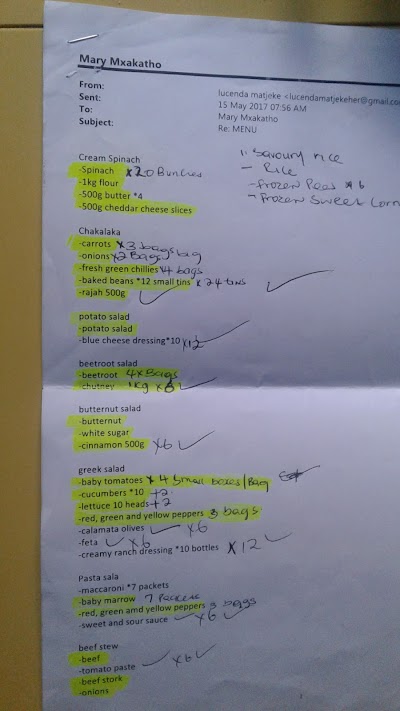 Mary Mxakatho
From: lucenda matjeke <lucendamatjekeher@gmail.co
Sent: 15 May 2017 07:56 AM
To: Mary Mxakatho
Subject: Re: MENU
1. Savoury rice
- Rice
- Frozen Peas x 6
- Frozen Sweet Corn
Cream Spinach
-Spinach x20 Bunches
-1kg flour
-500g butter *4
-500g cheddar cheese slices
Chakalaka
-carrots x 3 bags bag
-onions x2 Bags
-fresh green chillies 4 bags
-baked beans *12 small tins x 24 tins
-rajah 500g
potato salad
-potato salad
-blue cheese dressing*10 x12
beetroot salad
-beetroot 4x Bags
-chutney 1kg x 6
butternut salad
-butternut
-white sugar
-cinnamon 500g x6
greek salad
-baby tomatoes x 4 Small boxes/Bag
-cucumbers *10 +2
-lettuce 10 heads +2
-red, green and yellow peppers 3 bags
-calamata olives x6
-feta x6
-creamy ranch dressing *10 bottles x12
Pasta sala
-maccaroni *7 packets
-baby marrow 7 Packets
-red, green amd yellow peppers 3 bags
-sweet and sour sauce x6
beef stew
-beef
-tomato paste x6
-beef stork
-onions